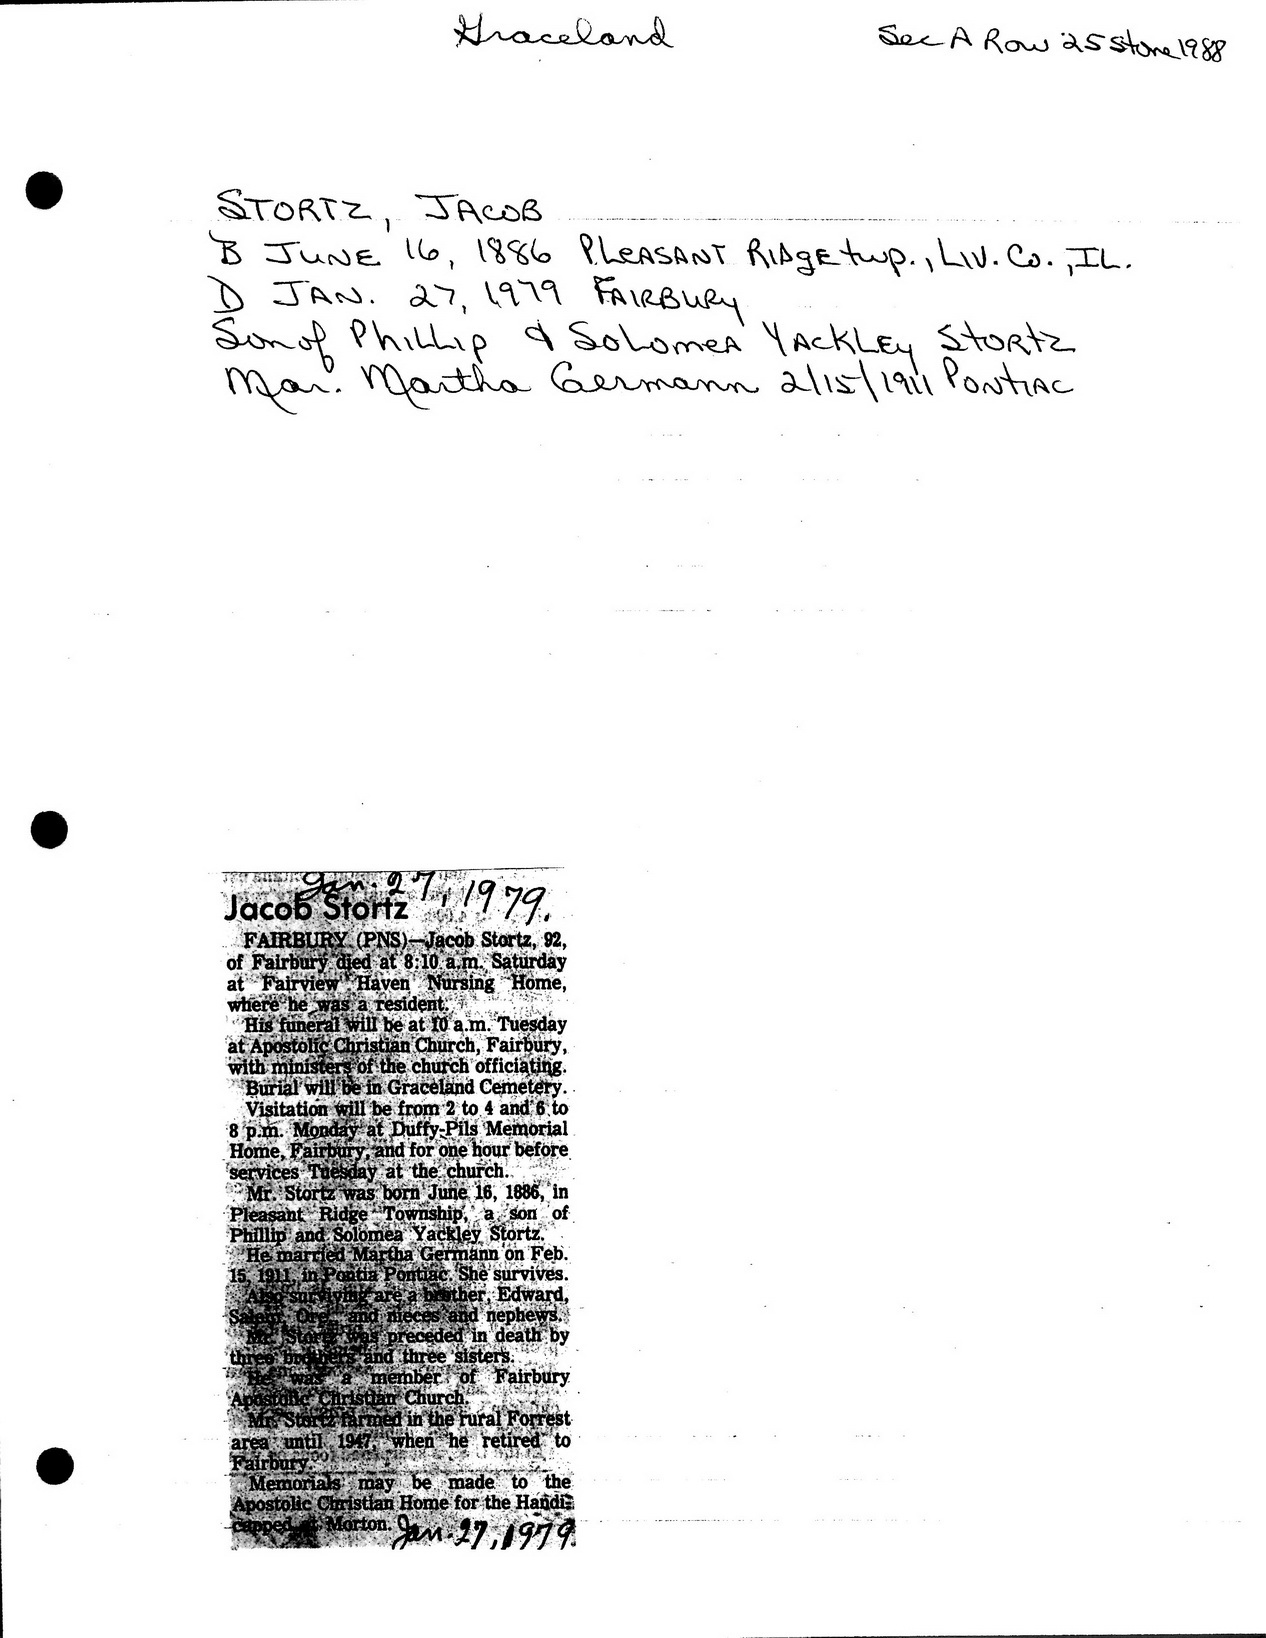 Graceland
Sec A Row 25 Stone 1988
STORTZ, JACOB
B JUNE 16, 1886 PLEASANT RIDGE twp., LIV. Co., IL.
D JAN. 27, 1979 FAIRBURY
Son of Phillip & Solomea YACKLEY STORTZ
Mar. Martha Germann 2/15/1911 PONTIAC
Jan. 27, 1979.
Jacob Stortz
FAIRBURY (PNS)—Jacob Stortz, 92,
of Fairbury died at 8:10 a.m. Saturday
at Fairview Haven Nursing Home,
where he was a resident.
His funeral will be at 10 a.m. Tuesday
at Apostolic Christian Church, Fairbury,
with ministers of the church officiating.
Burial will be in Graceland Cemetery.
Visitation will be from 2 to 4 and 6 to
8 p.m. Monday at Duffy-Pils Memorial
Home, Fairbury, and for one hour before
services Tuesday at the church.
Mr. Stortz was born June 16, 1886, in
Pleasant Ridge Township, a son of
Phillip and Solomea Yackley Stortz.
He married Martha Germann on Feb.
15, 1911, in Pontia Pontiac. She survives.
Also surviving are a brother, Edward,
Salem, Ore., and nieces and nephews.
Mr. Stortz was preceded in death by
three brothers and three sisters.
He was a member of Fairbury
Apostolic Christian Church.
Mr. Stortz farmed in the rural Forrest
area until 1947, when he retired to
Fairbury.
Memorials may be made to the
Apostolic Christian Home for the Handi-
capped at Morton.
Jan. 27, 1979.